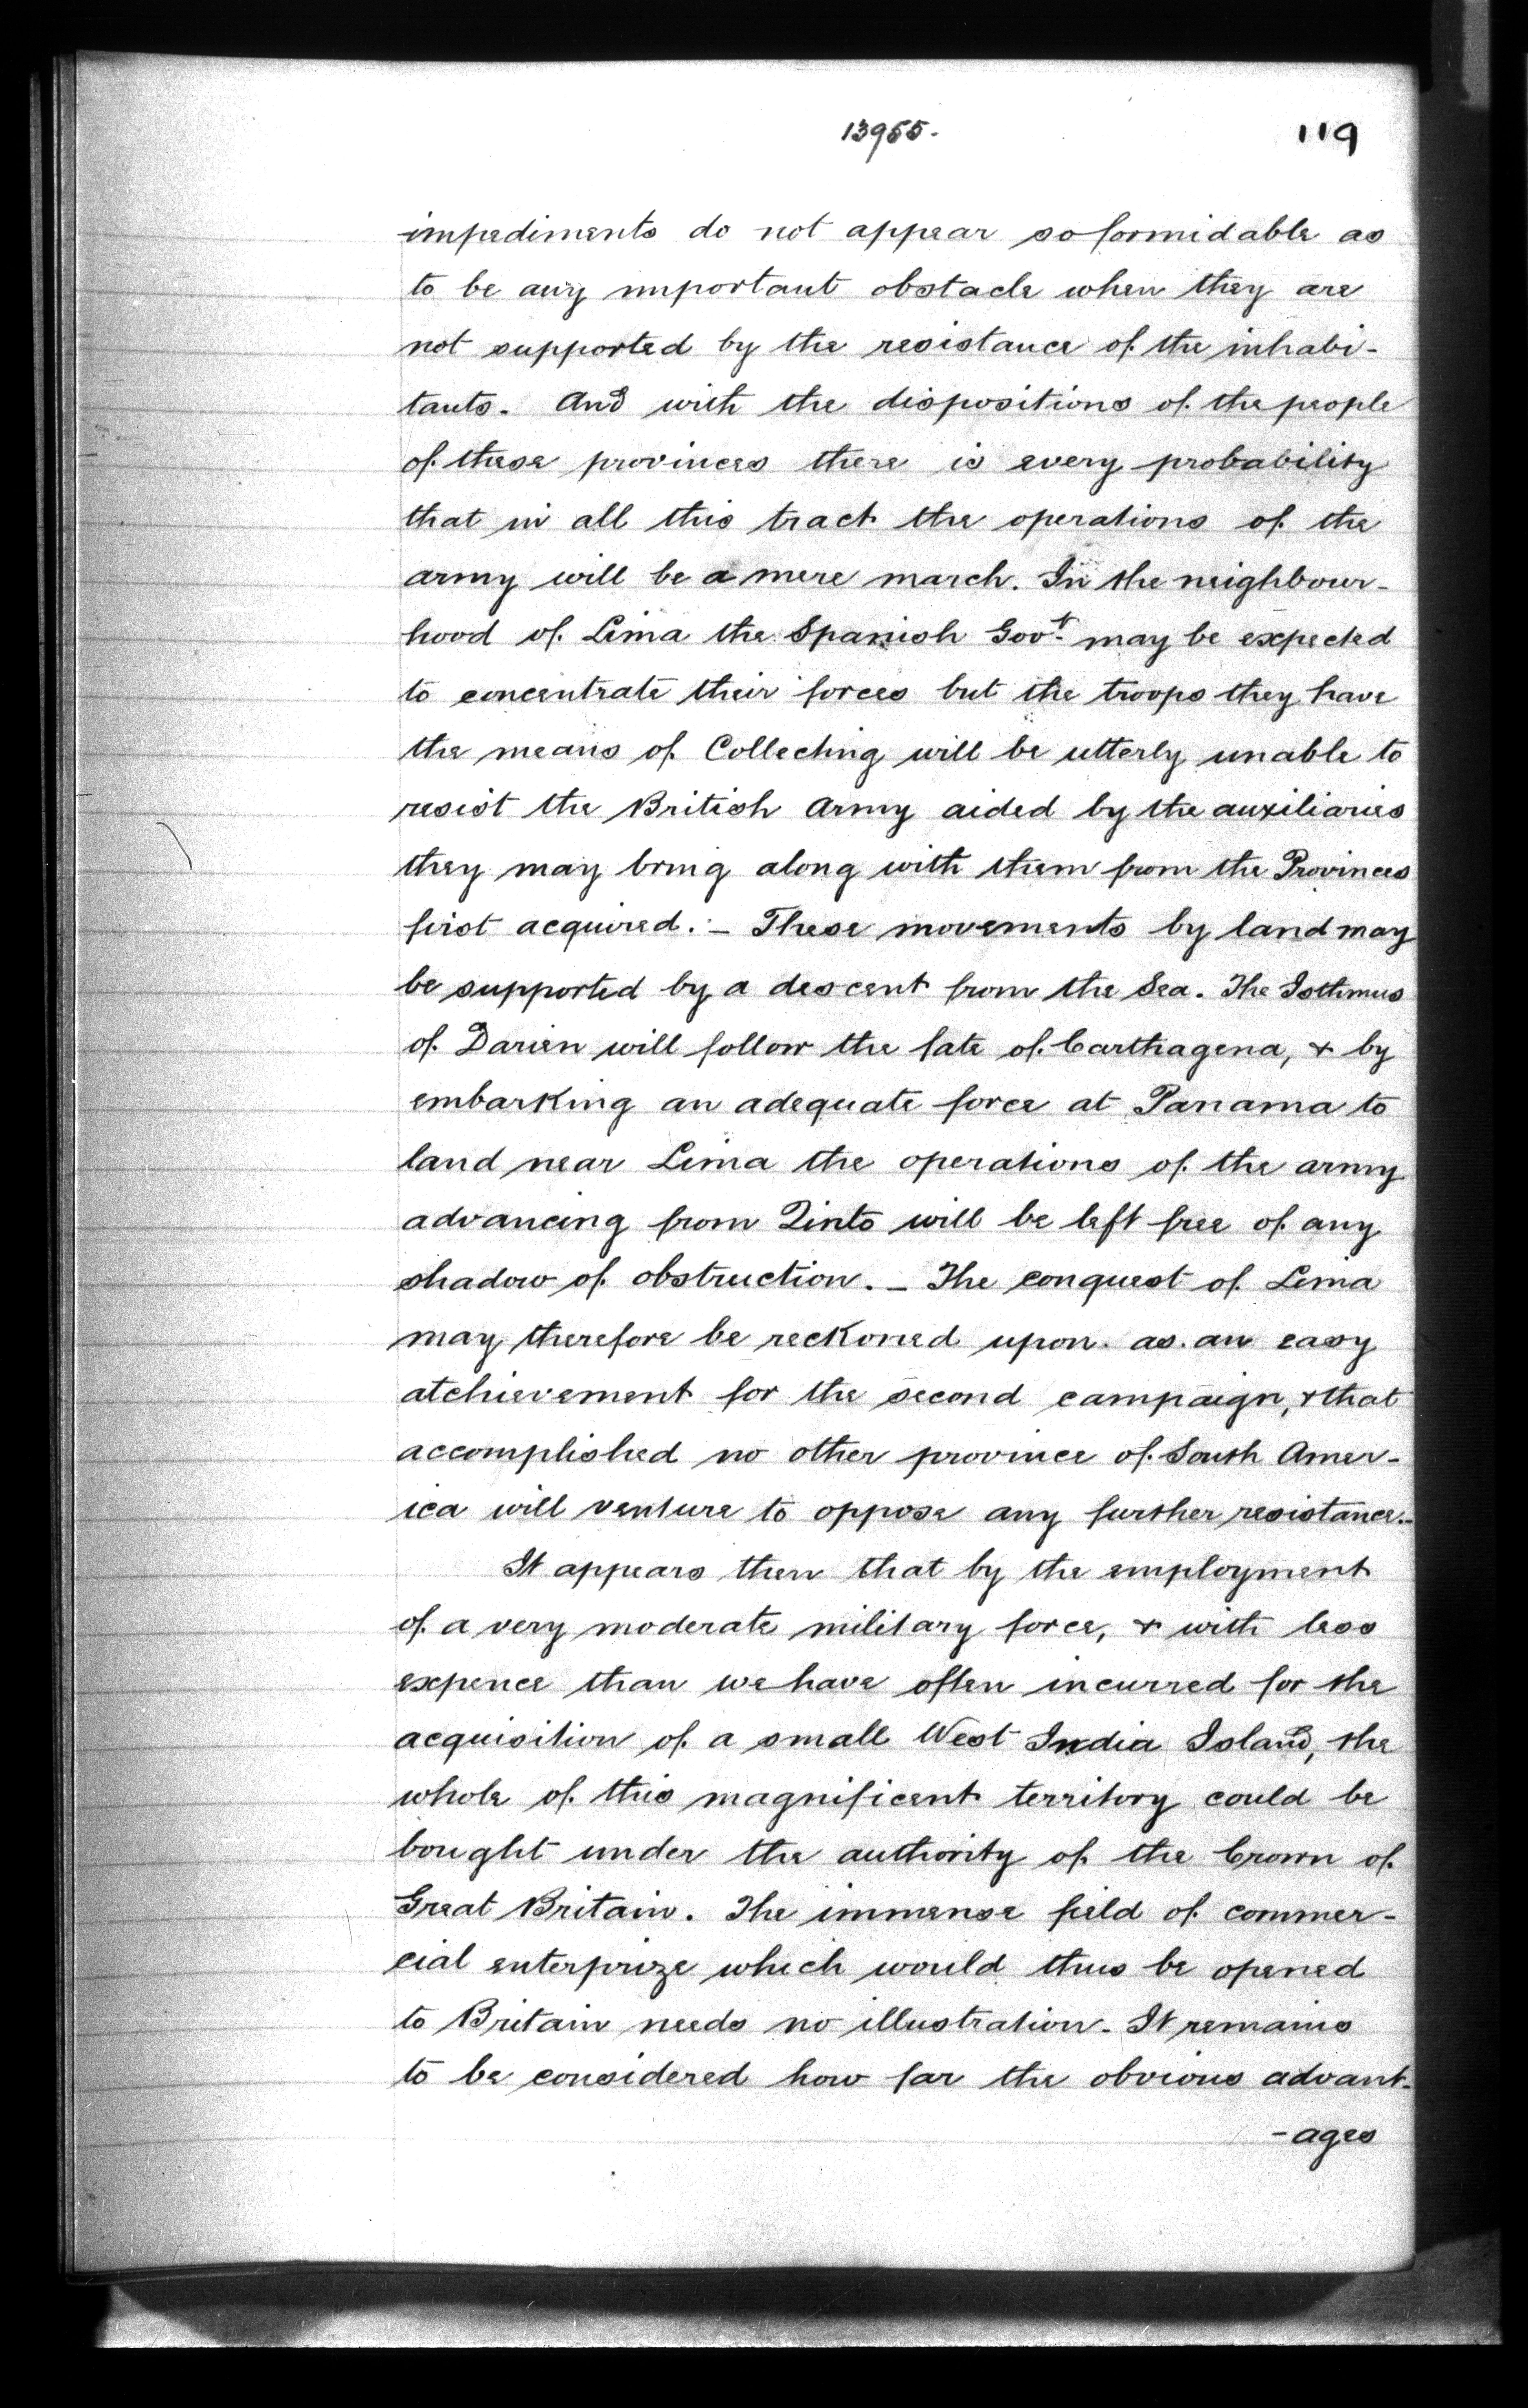 13955.
119
impediments do not appear so formidable as
to be any important obstacle when they are
not supported by the resistance of the inhabi-
tants. And with the dispositions of the people
of these provinces there is every probability
that in all this tract the operations of the
army will be a mere march. In the neighbour-
hood of Lima the Spanish Govt. may be expected
to concentrate their forces but the troops they have
the means of Collecting will be utterly unable to
resist the British Army aided by the auxiliaries
they may bring along with them from the Provinces
first acquired. :- These movements by land may
be supported by a descent from the Sea. The Isthmus
of Darien will follow the fate of Carthagena, & by
embarking an adequate force at Panama to
land near Lima the operations of the army
advancing from Qinto will be left free of any
shadow of obstruction. - The conquest of Lima
may therefore be reckoned upon. as. an easy
atchievement for the second campaign, & that
accomplished no other province of South Amer-
ica will venture to oppose any further resistance.-
It appears then that by the employment
of a very moderate military force, & with less
expence than we have often incurred for the
acquisition of a small West India Island, the
whole of this magnificent territory could be
bought under the authority of the Crown of
Great Britain. The immense field of commer-
cial enterprize which would thus be opened
to Britain needs no illustration. It remains
to be considered how far the obvious advant-
-ages